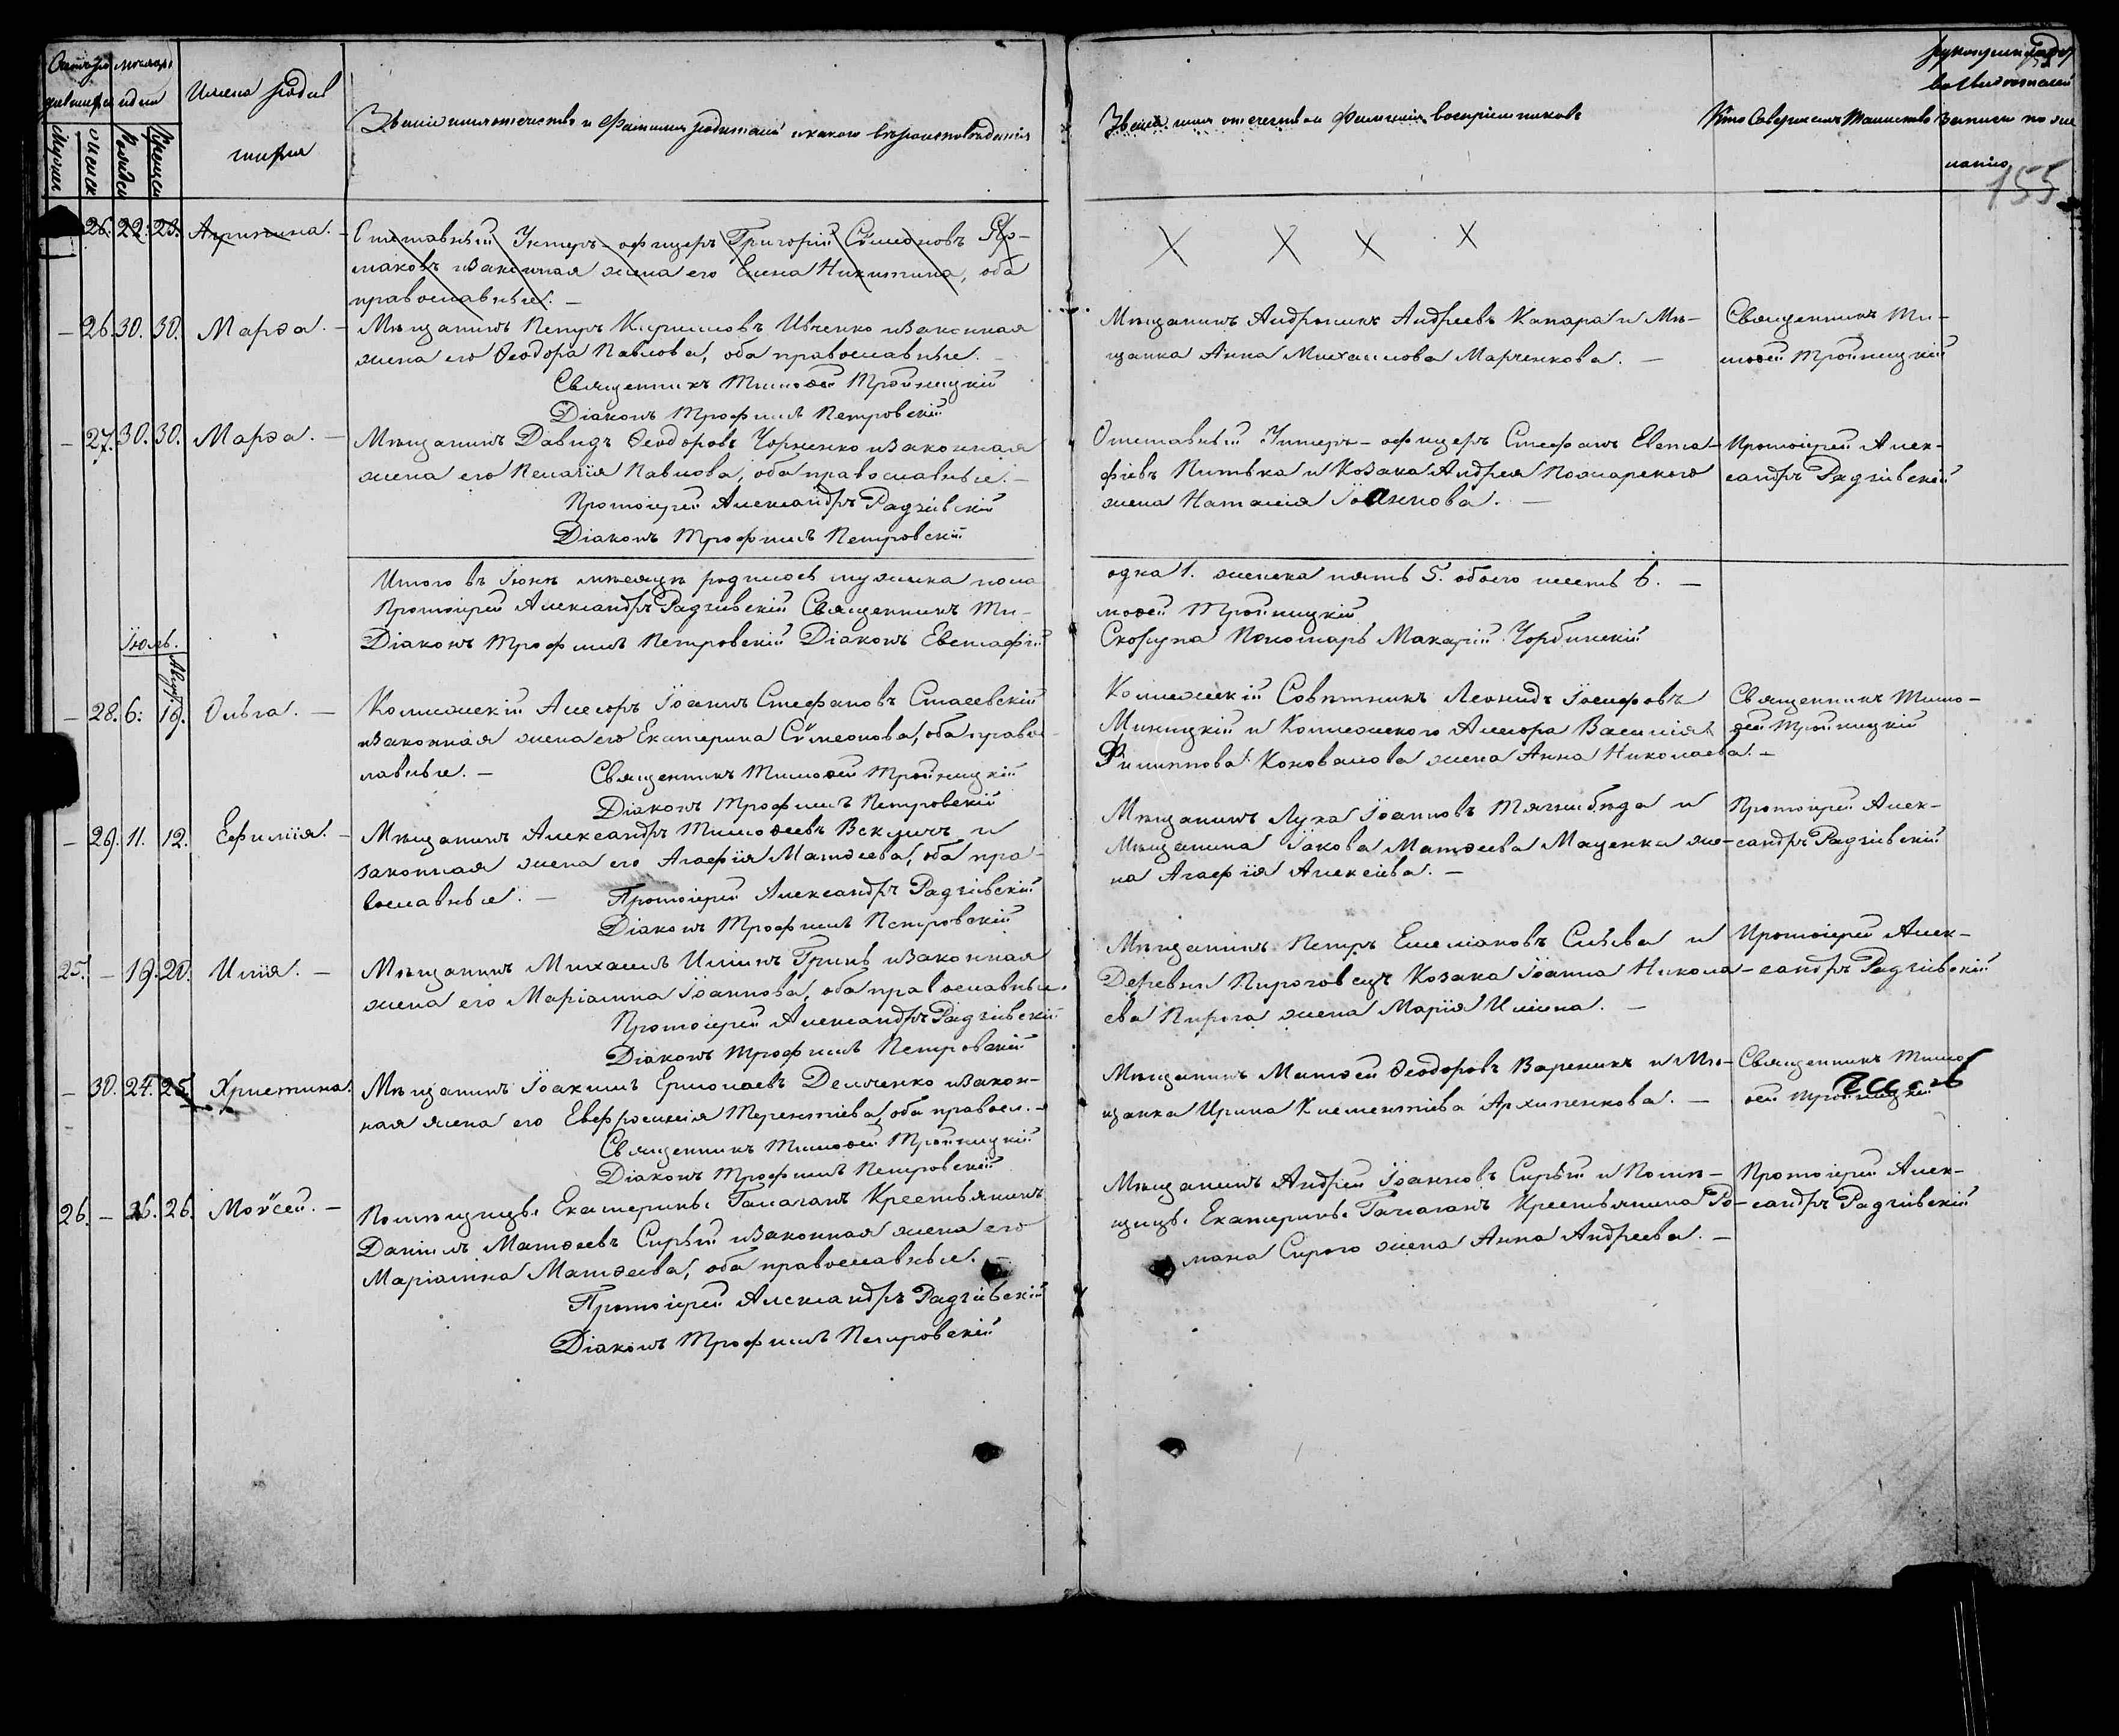 Имена родив
шихся
Званіе имя отечество и Фамилія родителей и какого вѣроисповѣданія
Званіе имя отечество и Фамилія воспріемниковъ
Кто Совершилъ Таинство
155
26. 22. 23. Агрипина. —
Отставный Унтеръ-офицеръ Григорій Сѵмеоновъ
маковъ и законная жена его Елена Никитина, оба
православные. —
— 26. 30. 30. Марѳа. —
Мѣщанинъ Петръ Кириловъ Ивченко и законная
жена его Ѳеодора Павлова, оба православные. —
Священникъ Тимоѳей Тройницкій
Діаконъ Трофимъ Петровскій
Мѣщанинъ Андроникъ Андреевъ Капара и Мѣ-
щанка Анна Михаилова Марченкова. —
Священникъ Ти-
моѳей Тройницкій
— 27. 30. 30. Марѳа. —
Мѣщанинъ Давидъ Ѳеодоровъ Чорненко и законная
жена его Пелагія Павлова, оба православные. —
Протоіерей Александръ Радзіевскій
Діаконъ Трофимъ Петровскій
Отставный Унтеръ-офицеръ Стефанъ Евста-
фіевъ Питька и Козака Андрея Пожарского
жена Наталія Іоаннова. —
Протоіерей Алек-
сандръ Радзіевскій
Итого въ Іюнѣ мѣсяцѣ родилось мужеска пола
одна 1. женска пять 5. обоего шесть 6. —
Протоіерей Александръ Радзіевскій Священникъ Ти-
моѳей Тройницкій
Діаконъ Трофимъ Петровскій Діаконъ Евстафій
Скобупа Пономарь Макарій Чорбинскій
Іюль.
Авгус.
— 28. 6. 19. Ольга. —
Колежскій Асесоръ Іоаннъ Стефановъ Стасевскій
и законная жена его Екатерина Сѵмеонова, оба право-
лавные. —
Священникъ Тимоѳей Тройницкій
Діаконъ Трофимъ Петровскій
Колежскій Совѣтникъ Леонидъ Іосифовъ
Милицкій и Колежского Асесора Василія
Филиппова Коновалова жена Анна Николаева. —
Священникъ Тимо-
ѳей Тройницкій
— 29. 11. 12. Ефимія. —
Мѣщанинъ Александръ Тимоѳеевъ Векличъ и
законная жена его Агафія Матѳеева, оба пра-
вославные. —
Протоіерей Александръ Радзіевскій
Діаконъ Трофимъ Петровскій
Мѣщанинъ Лука Іоанновъ Тягнибѣда и
Мѣщанина Іакова Матѳеева Маценки же-
на Агафія Алексіева. —
Протоіерей Алек-
сандръ Радзіевскій
25. — 19. 20. Илія. —
Мѣщанинъ Михаилъ Иліинъ Гринь и законная
жена его Маріанна Іоаннова, оба православные.
Протоіерей Александръ Радзіевскій
Діаконъ Трофимъ Петровскій
Мѣщанинъ Петръ Емеліановъ Сліва и
Деревни Пироговецъ Козака Іоанна Никола-
ева Пирога жена Марія Иліина. —
Протоіерей Алек-
сандръ Радзіевскій
— 30. 24. 25. Христина.
Мѣщанинъ Іоакимъ Ермолаевъ Демченко и закон-
ная жена его Евфросинія Терентіева, оба правосл. —
Священникъ Тимоѳей Тройницкій
Діаконъ Трофимъ Петровскій
Мѣщанинъ Матѳей Ѳеодоровъ Вареникъ и Мѣ-
щанка Ирина Климентіева Архипенкова. —
Священникъ Тимо
ѳей Тройницкій
26. — 26. 26. Моѵсей. —
Помѣщицы Екатерины Галаганъ Крестьянинъ
Даніилъ Матѳеевъ Сирый и законная жена его
Маріанна Матѳеева, оба православные. —
Протоіерей Александръ Радзіевскій
Діаконъ Трофимъ Петровскій
Мѣщанинъ Андрей Іоанновъ Сирый и Помѣ-
щицы Екатерины Галаганъ Крестьянина Ро-
мана Сирого жена Анна Андреева. —
Протоіерей Алек-
сандръ Радзіевскій